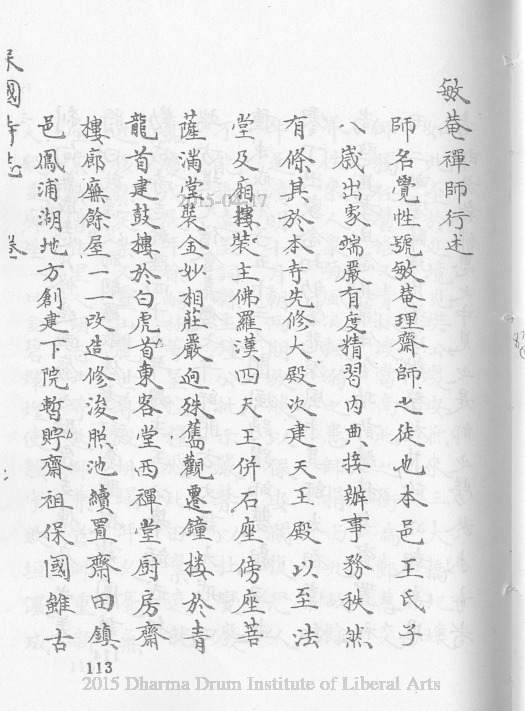 敏菴禪師行述
師名覺性號敏菴理齋師之徒也本邑王氏子
歲出家端嚴有度精習内典接辦事務秩然
有條其於本寺先修大殿次建天王殿以至法
堂及廂樓裝主佛羅漢四天王併石座傍座菩
薩滿堂裝金妙相莊嚴逈殊舊觀遷鐘樓於青
龍首建鼓樓於白虎首東客堂西禪堂厨房齋
樓廊廡餘屋一一改造修浚照池續置齋田鎮
邑鳳浦湖地方創建下院暫貯齋祖保國雖古
保國寺志 卷
113
2015-04-17
2015 Dharma Drum Institute of Liberal Arts